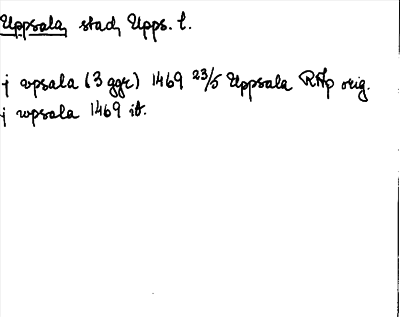 Uppsala, stad, Upps. l.
j vpsala (3 ggr) 1469 23/5 Uppsala RAp orig.
j wpsala 1469 ib.